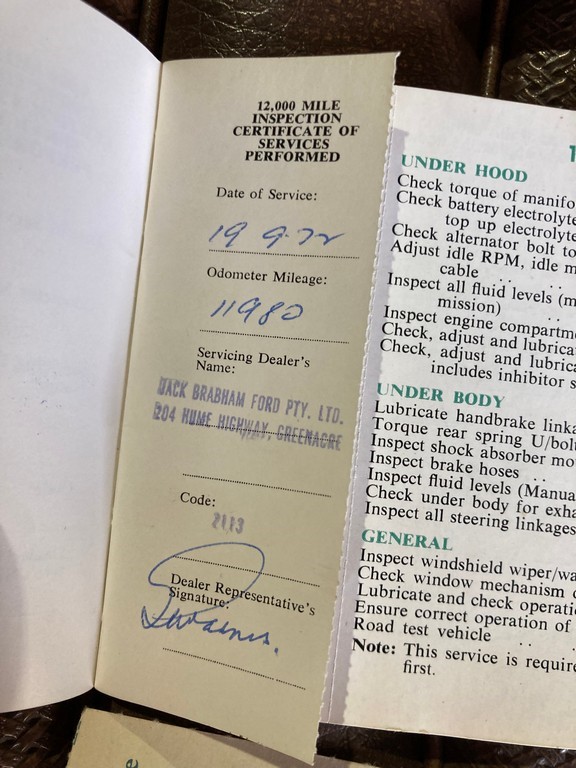 12,000 MILE
INSPECTION
CERTIFICATE OF
SERVICES
PERFORMED
Date of Service:
19 9-72
Odometer Mileage:
11980
Servicing Dealer's
Name:
JACK BRABHAM FORD PTY. LTD.
204 HUME HIGHWAY, GREENACRE
Code:
2113
Dealer Representative's
Signature:
1
UNDER HOOD
Check torque of manifo
Check battery electrolyte
top up electrolyte
Check alternator bolt to
Adjust idle RPM, idle m
cable .. ..
Inspect all fluid levels (m
mission) ..
Inspect engine compartme
Check, adjust and lubrica
Check, adjust and lubrica
includes inhibitor s
UNDER BODY
Lubricate handbrake linka
Torque rear spring U/bolt
Inspect shock absorber mo
Inspect brake hoses ..
Inspect fluid levels (Manua
Check under body for exha
Inspect all steering linkages
GENERAL
Inspect windshield wiper/wa
Check window mechanism
Lubricate and check operati
Ensure correct operation of
Road test vehicle .. ..
Note: This service is require
first.